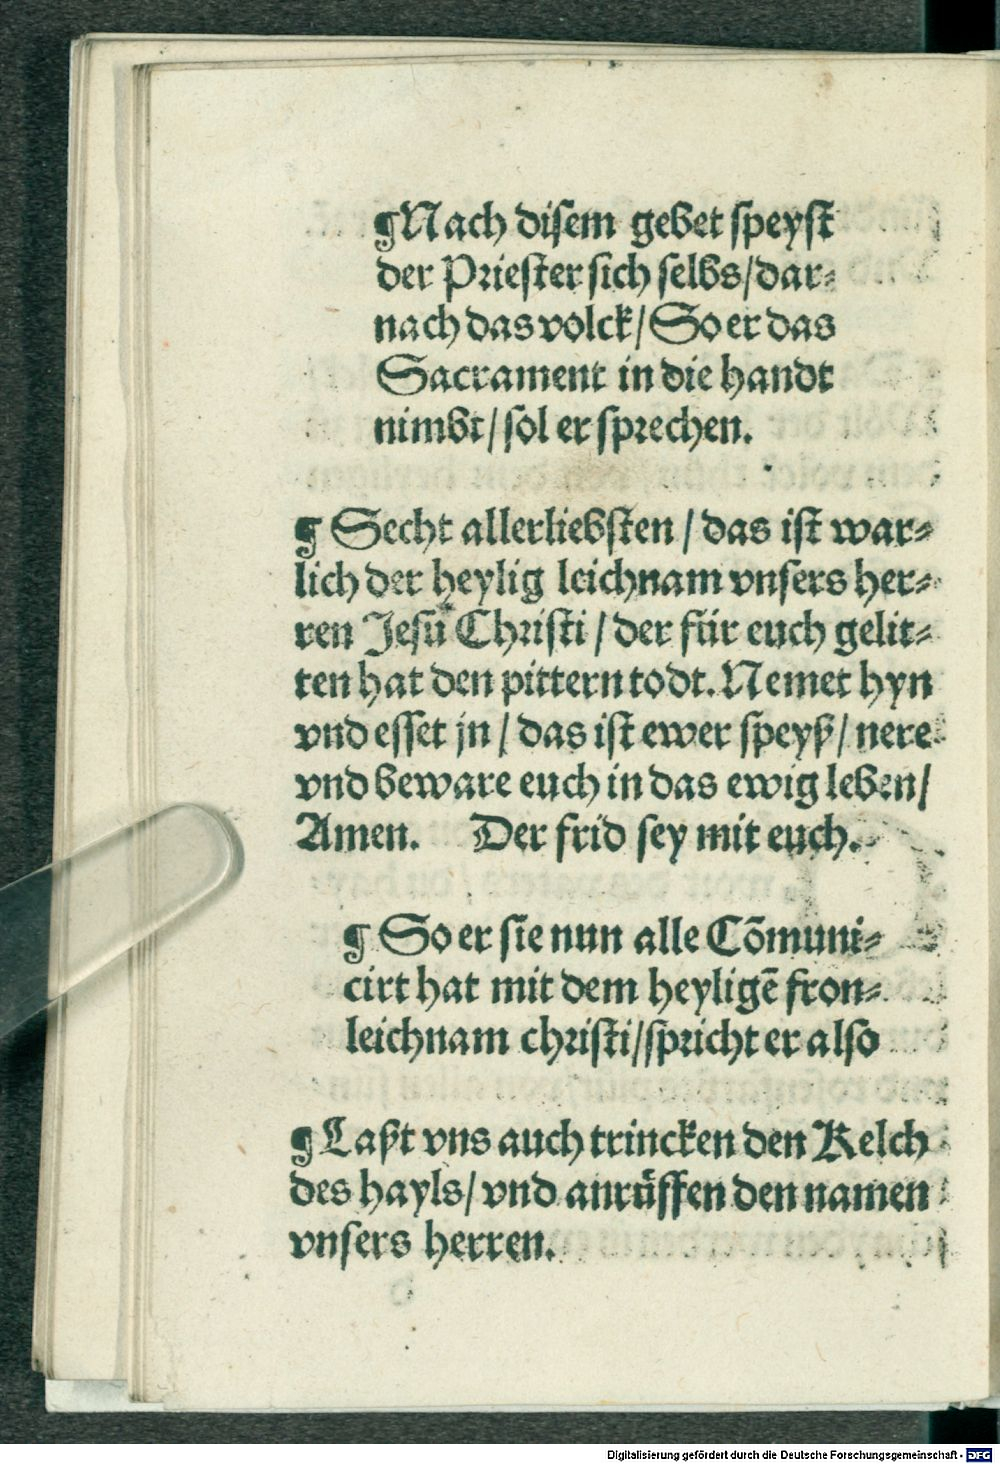 ¶Nach disem gebet speyst
der Priester sich selbs/dar⸗
nach das volck/So er das
Sacrament in die handt
nimbt/sol er sprechen.
¶ Secht allerliebsten / das ist war⸗
lich der heylig leichnam vnsers her⸗
ren Jesu Christi / der für euch gelit⸗
ten hat den pittern todt. Nemet hyn
vnd esset jn / das ist ewer speyß/ nere
vnd beware euch in das ewig leben/
Amen. Der frid sey mit euch.
¶ So er sie nun alle Cōmuni⸗
cirt hat mit dem heyligē fron⸗
leichnam christi/spricht er also
¶ Laßt vns auch trincken den Kelch
des hayls/ vnd anrůffen den namen
vnsers herren.
Digitalisierung gefördert durch die Deutsche Forschungsgemeinschaft - DFG